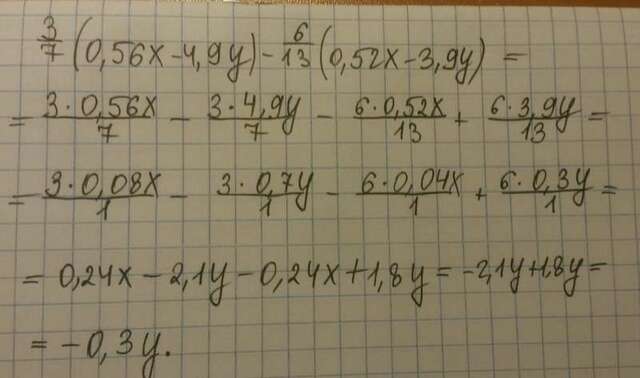 3/7 (0,56x-4,9y) - 6/13 (0,52x-3,9y) =
= 3·0,56x/7 - 3·4,9y/7 - 6·0,52x/13 + 6·3,9y/13 =
= 3·0,08x/1 - 3·0,7y/1 - 6·0,04x/1 + 6·0,3y/1 =
= 0,24x - 2,1y - 0,24x + 1,8y = -2,1y+1,8y =
= -0,3y.